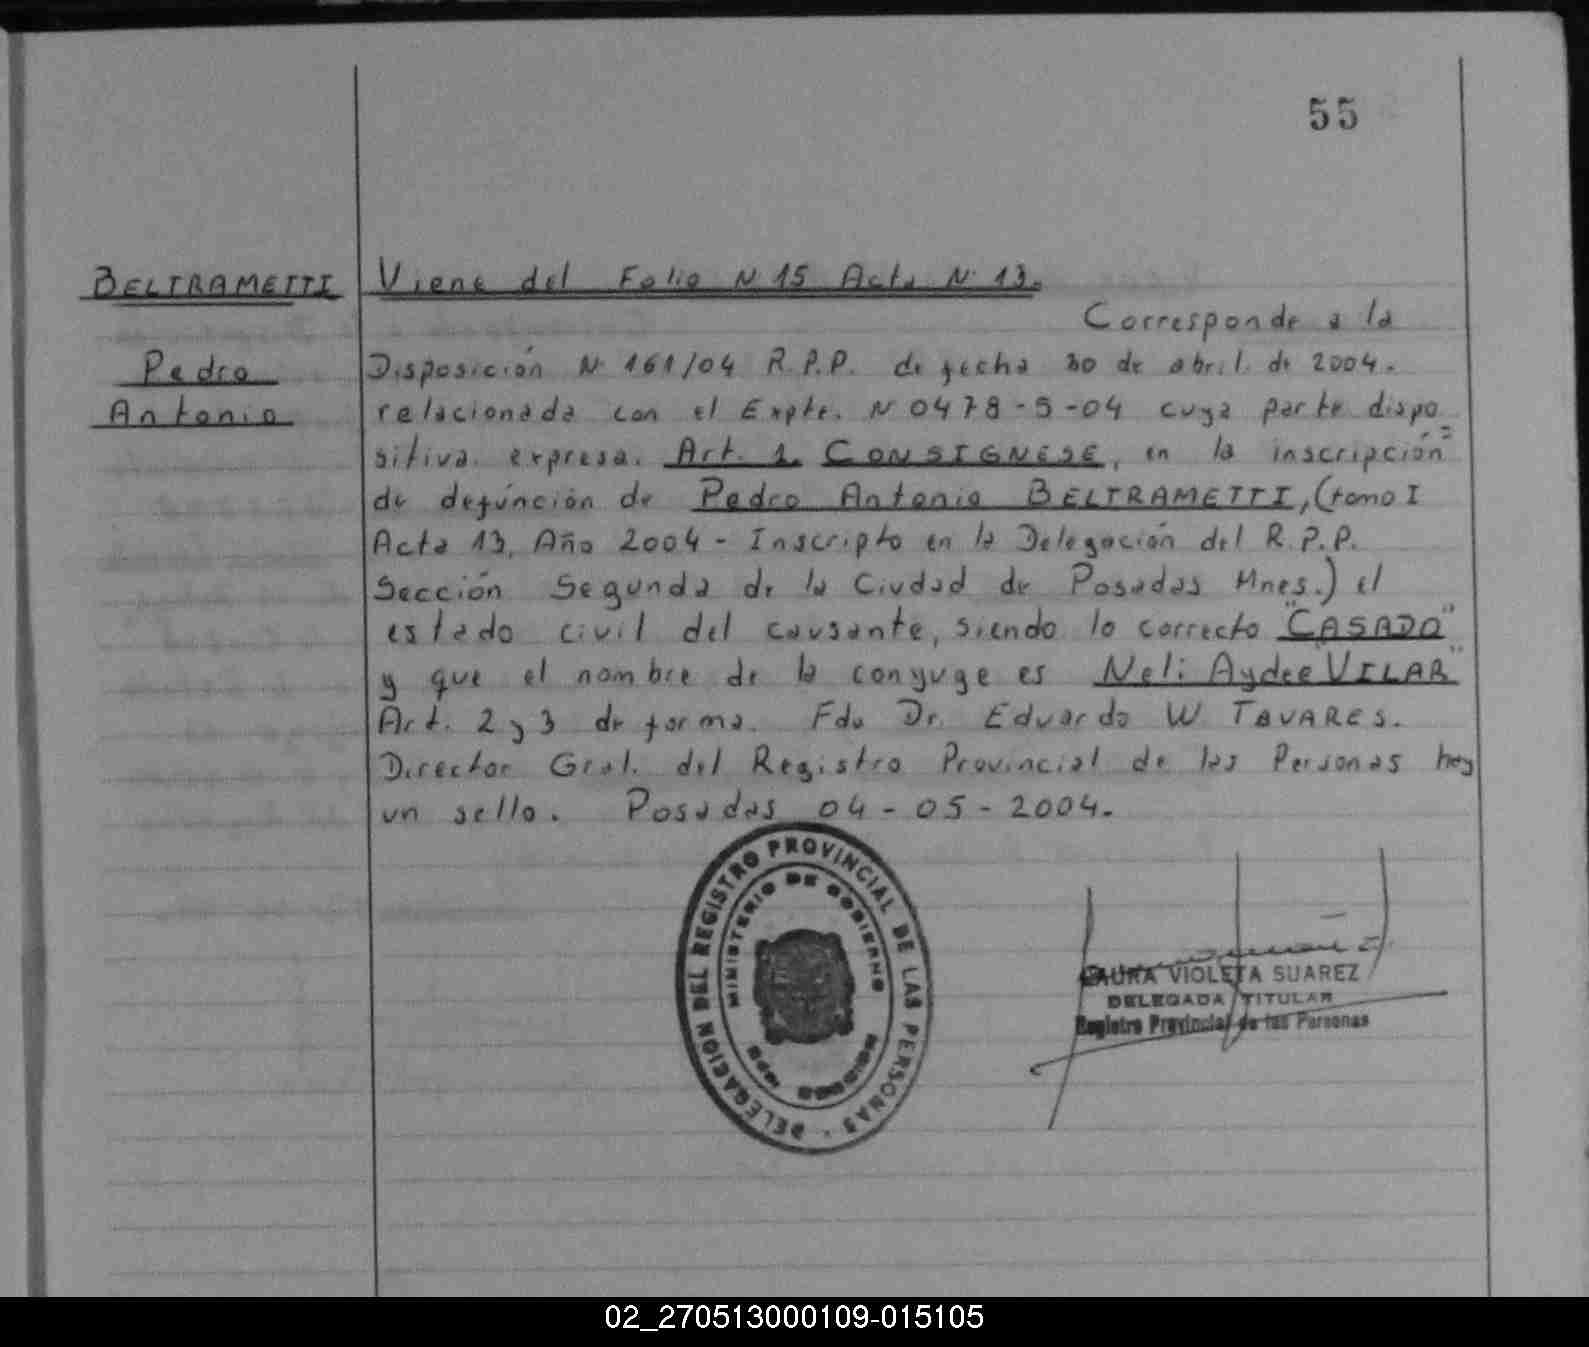 55
BELTRAMETTI
Pedro
Antonio
Viene del Folio N 15 Acta N° 13.
Corresponde a la
Disposición N° 161/04 R.P.P. de fecha 30 de abril de 2004.
relacionada con el Expte. N 0478-S-04 cuya parte dispo
sitiva. expresa. Art. 1. CONSIGNESE, en la inscripción
de defúnción de Pedro Antonio BELTRAMETTI, (tomo I
Acta 13, Año 2004 - Inscripto en la Delegación del R.P.P.
Sección Segunda de la Ciudad de Posadas Mnes.) el
estado civil del causante, siendo lo correcto "CASADO"
y que el nombre de la conyuge es Neli Aydee "VILAR"
Art. 2 y 3 de forma. Fdo Dr. Eduardo W. TAVARES.
Director Gral. del Registro Provincial de las Personas hay
un sello. Posadas 04-05-2004.
DELEGACION DEL REGISTRO PROVINCIAL DE LAS PERSONAS -
MINISTERIO DE GOBIERNO
LAURA VIOLETA SUAREZ
DELEGADA TITULAR
Registro Provincial de las Personas
02_270513000109-015105